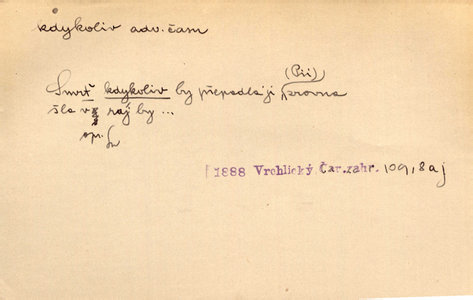 kdykoliv adv. čam
(Pii)
Smrť kdykoliv by přepadla ji rovna
šla v ráj by ...
opr.
1888 Vrchlický Čar.zahr. 109, 8 aj